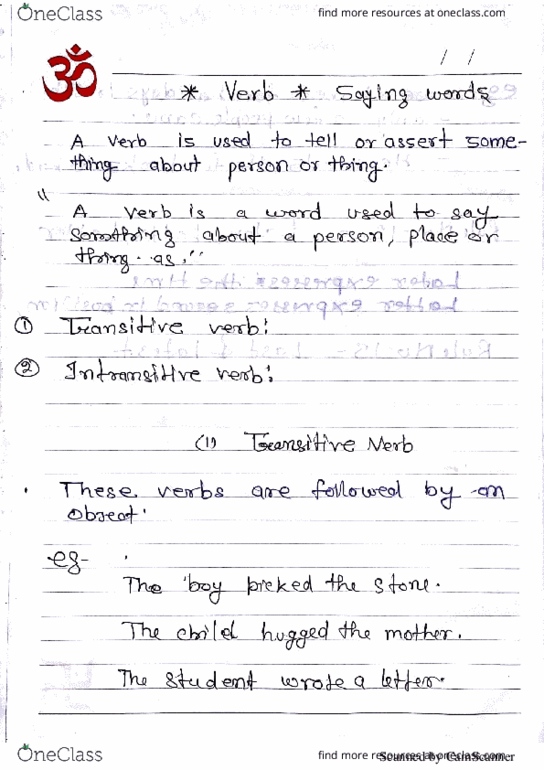 OneClass
find more resources at oneclass.com
ॐ
/ /
* Verb * Saying words
A verb is used to tell or assert some-
thing about person or thing.
" A verb is a word used to say
something about a person, place or
thing. as."
① Transitive verb:
② Intransitive verb:
(1) Transitive Verb
. These verbs are followed by an
object.
eg-
The boy picked the stone.
The child hugged the mother.
The student wrote a letter.
OneClass
find more resources at oneclass.com
Scanned by CamScanner